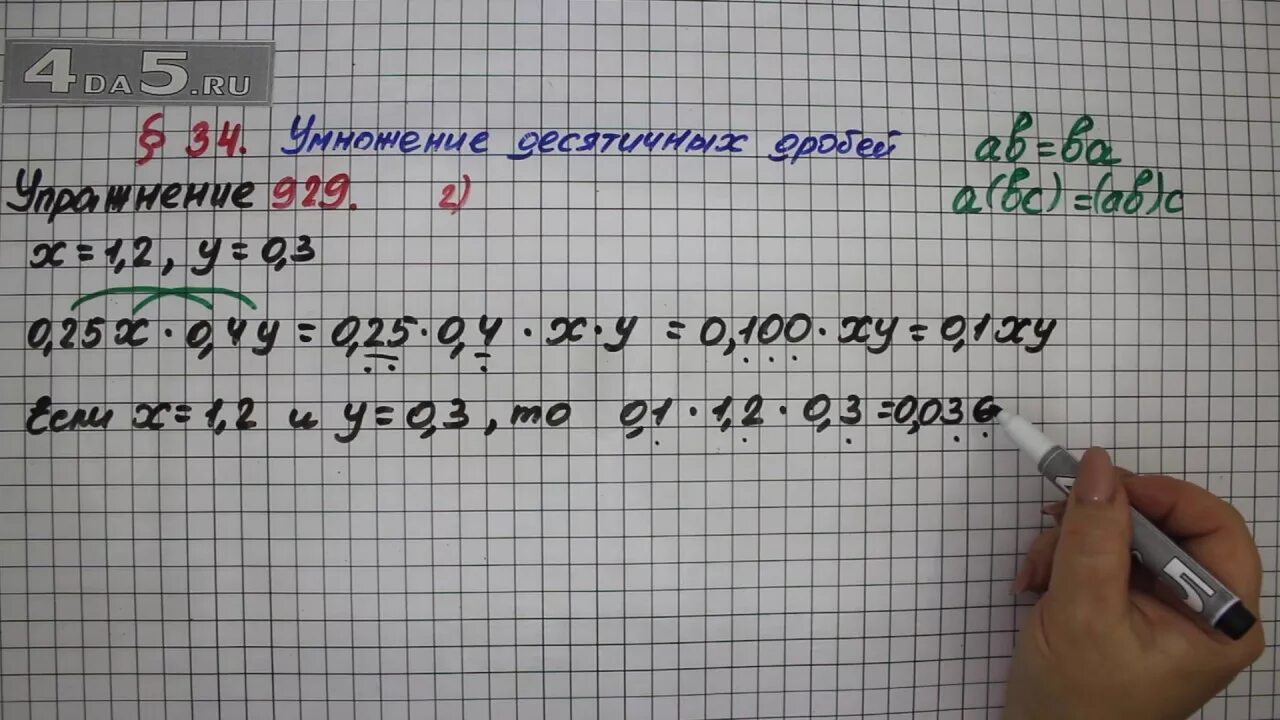 4DA5.RU
§ 34. Умножение десятичных дробей
ab=ba
Упражнение 929. г)
a(bc)=(ab)c
x=1,2, y=0,3
0,25x·0,4y=0,25·0,4·x·y=0,100·xy=0,1xy
Если x=1,2 и y=0,3, то 0,1·1,2·0,3=0,036
5